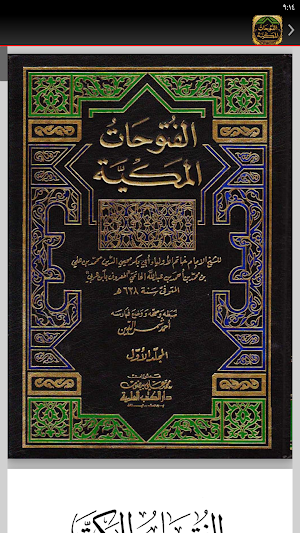 ٩:١٤
الفتوحات
المكية
الفُتوحَاتُ
المَكيَّة
للشيخ الإمام خاتم الأولياء أبي بكر محيي الدين محمد بن علي
بن محمد بن أحمد بن عبد الله الحاتمي المعروف بابن عربي
المتوفى سنة ٦٣٨ هـ
ضبطه وصححه ووضع فهارسه
أحمد شمس الدين
المجلد الأول
منشورات
محمد علي بيضون
دار الكتب العلمية
الفتوحات المكية